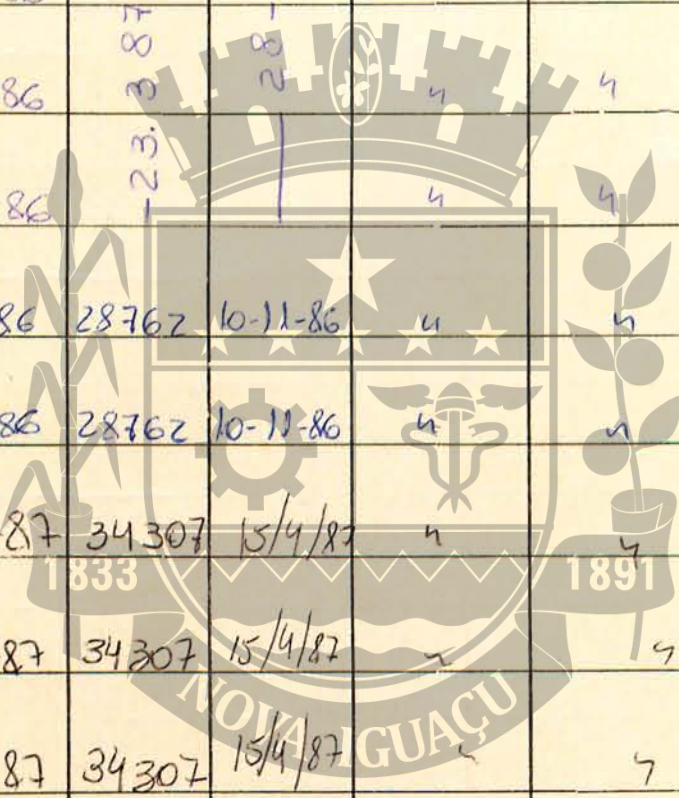 86 23. 3 87 28- " "
86 " "
86 28762 10-11-86 " "
86 28762 10-11-86 " "
87 34307 15/4/87 " "
87 34307 15/4/87 " "
87 34307 15/4/87 " "
1833 1891
NOVA IGUAÇU